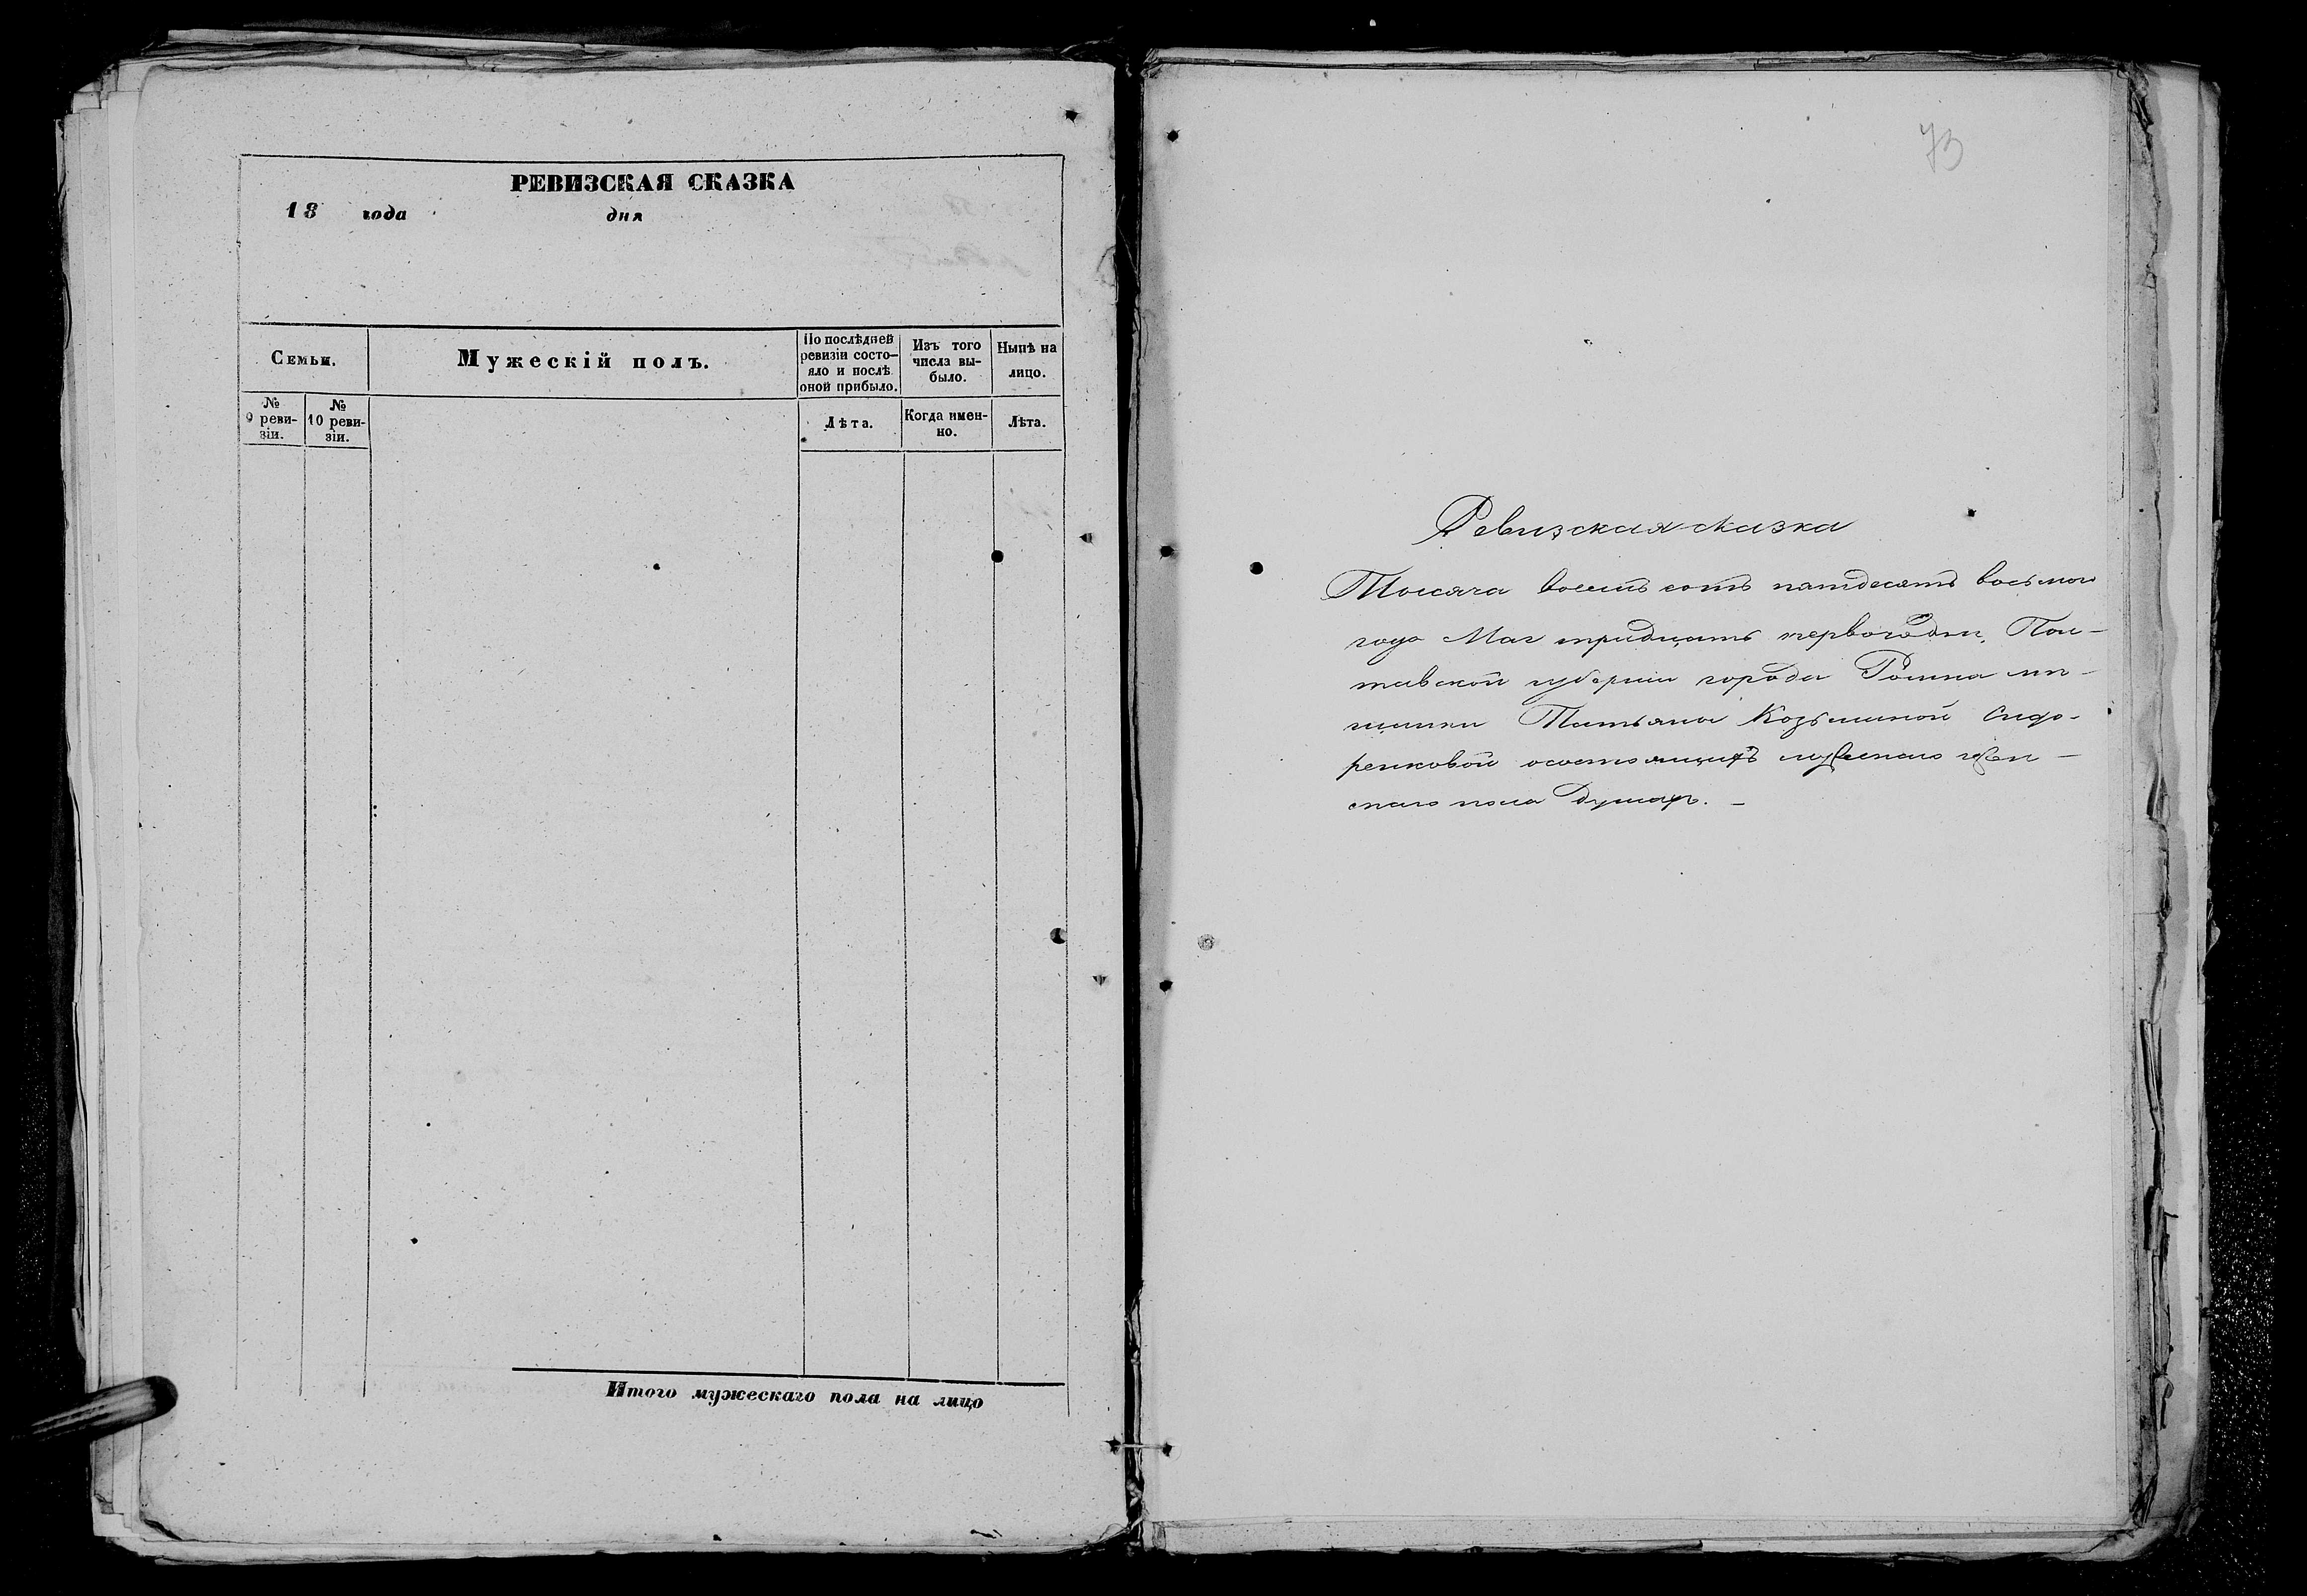 РЕВИЗСКАЯ СКАЗКА
18 года дня
Семьи.
Мужескій полъ.
По послѣдней
ревизіи состо-
яло и послѣ
оной прибыло.
Изъ того
числа вы-
было.
Нынѣ на
лицо.
№
9 реви-
зіи.
№
10 реви-
зіи.
Лѣта.
Когда имен-
но.
Лѣта.
Итого мужескаго пола на лицо
73
Ревизская сказка
Тысяча восемь сотъ пятдесятъ восьмого
года Мая тридцать перваго дня, Пол-
тавской губерніи города Ромна мѣ-
щанки Татьяны Козьминой Сидо-
ренковой осостоящихъ мужескаго жен-
скаго пола душахъ. —